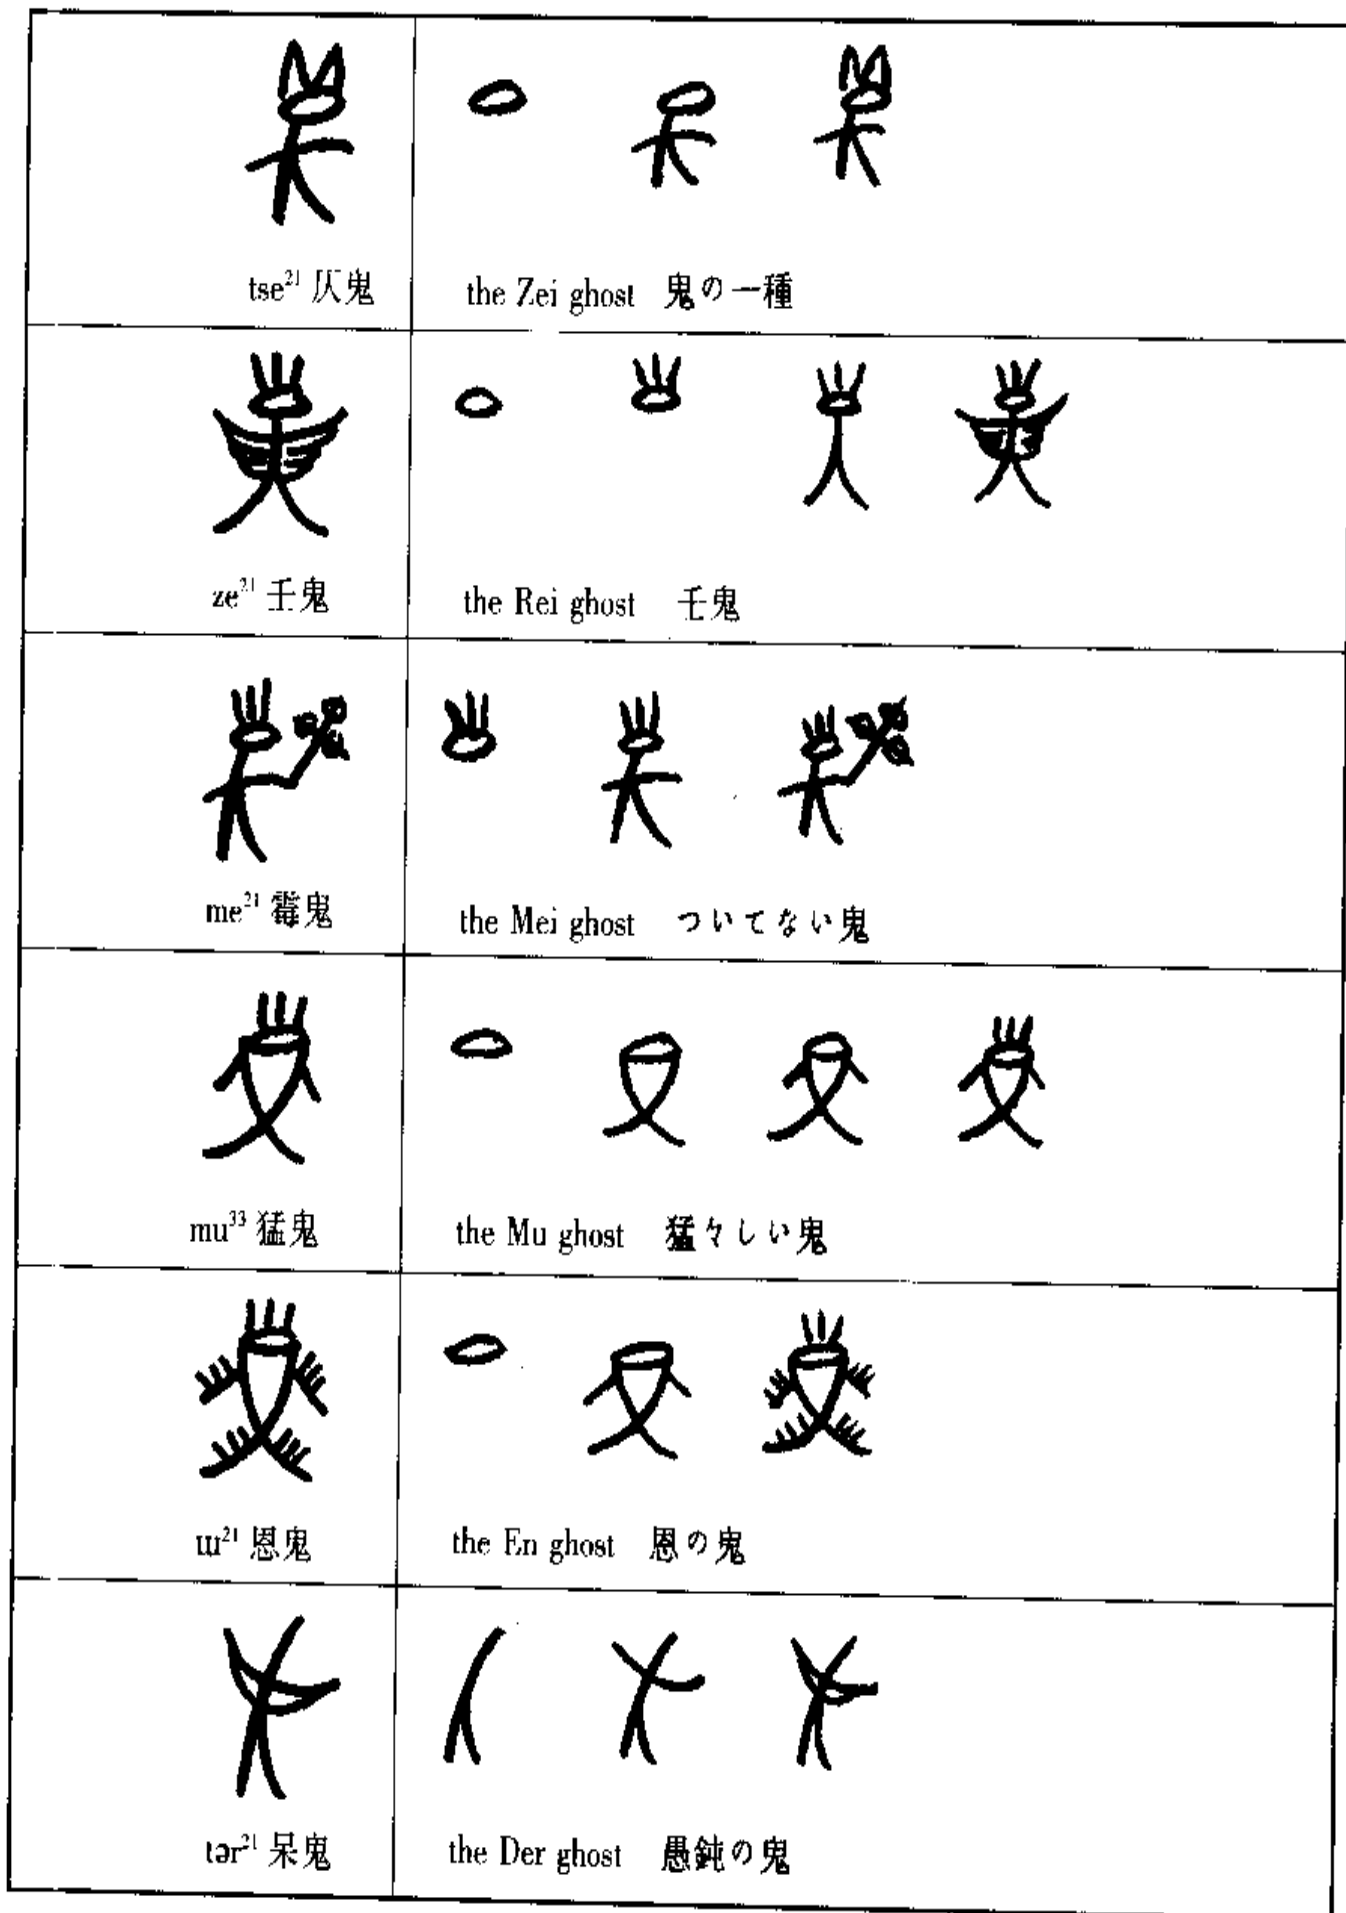 tse²¹ 仄鬼
the Zei ghost 鬼の一種
ze²¹ 壬鬼
the Rei ghost 壬鬼
me²¹ 霉鬼
the Mei ghost ついてない鬼
mu³³ 猛鬼
the Mu ghost 猛々しい鬼
ɯ²¹ 恩鬼
the En ghost 恩の鬼
tər²¹ 呆鬼
the Der ghost 愚鈍の鬼